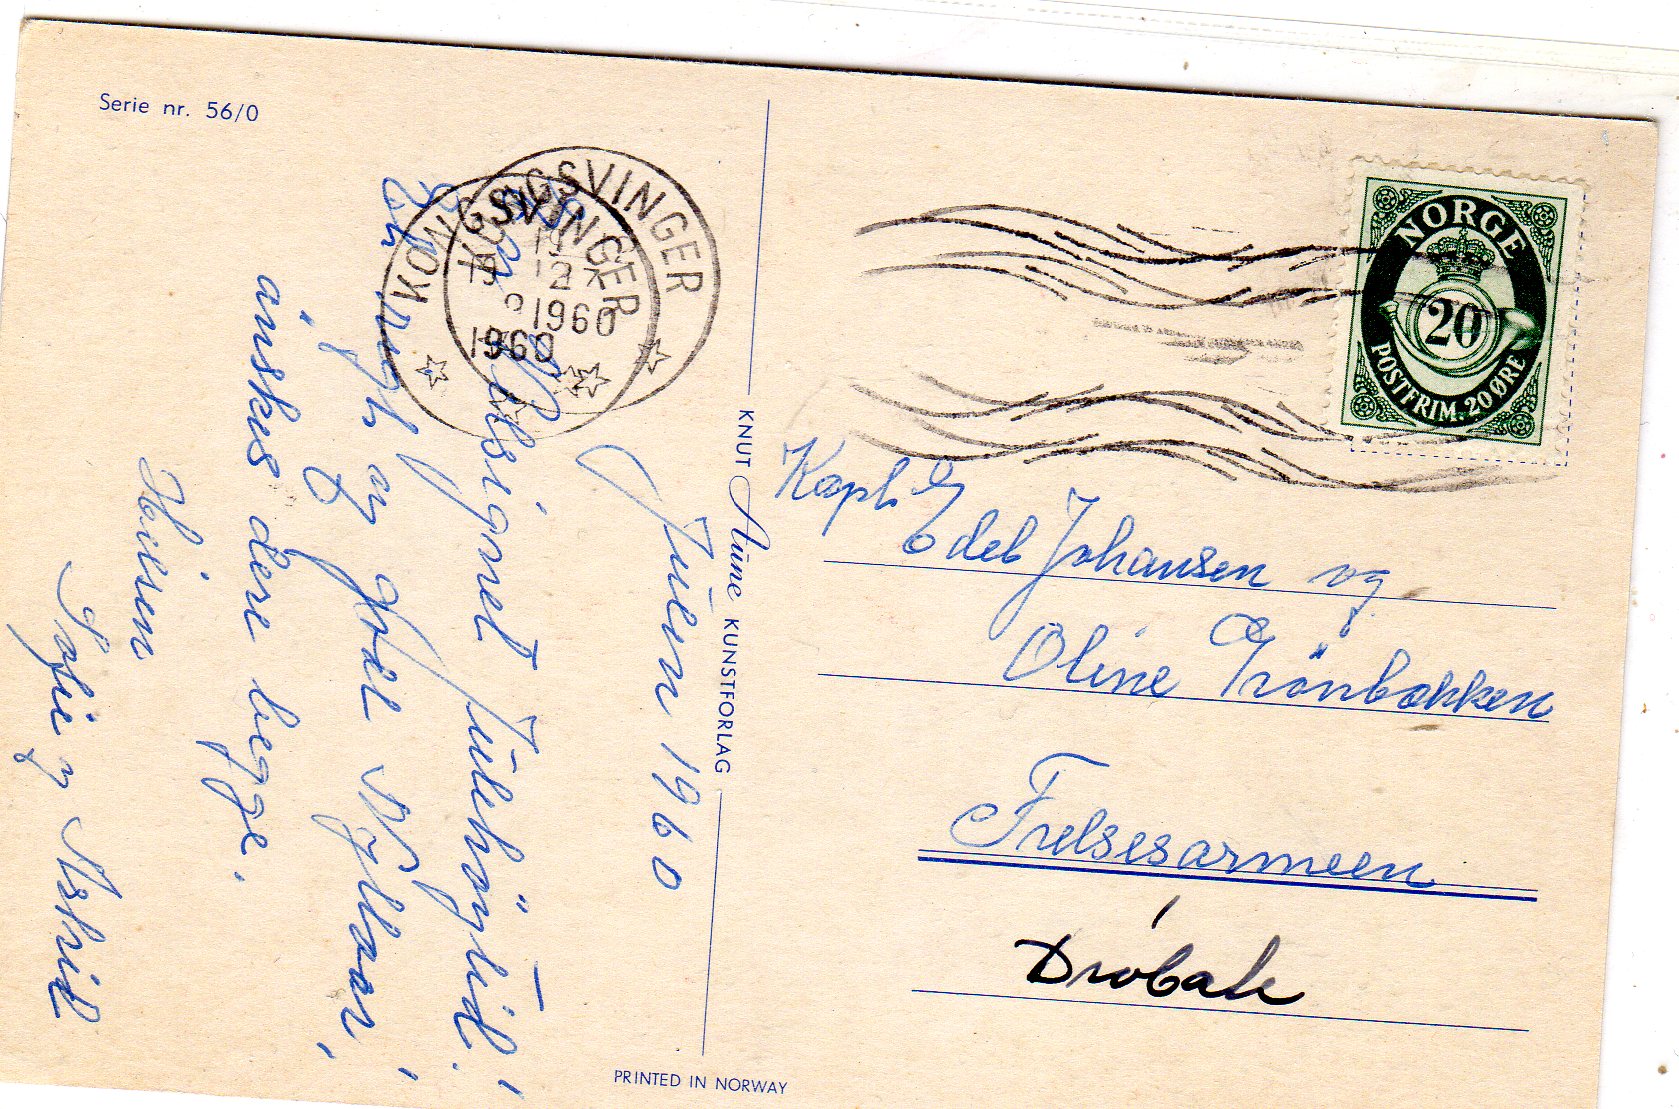 Serie nr. 56/0
KONGSVINGER
19
12
1960
KONGSVINGER
1960
Julen 1960
velsignet Julehögtid!
og godt Nyttår,
önskes dere begge.
Hilsen
Sofie og Astrid
KNUT Aune KUNSTFORLAG
PRINTED IN NORWAY
NORGE
20
POSTFRIM. 20 ØRE
Kapt. Edel Johansen og
Oline Grönbakken
Frelsesarmeen
Drøbak